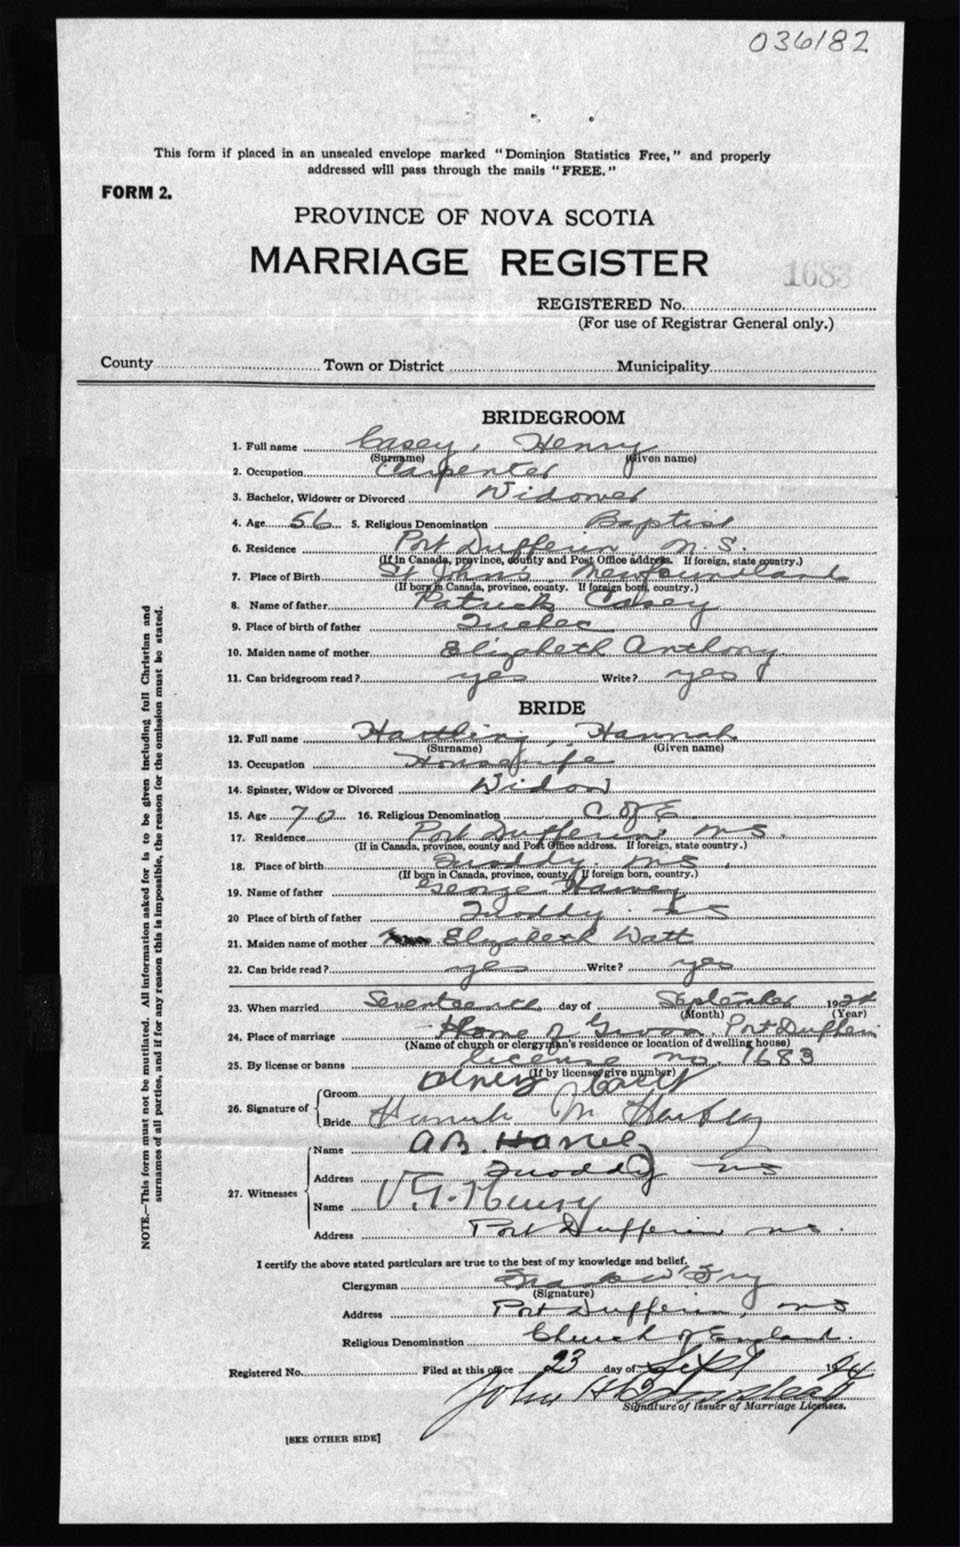 036182
This form if placed in an unsealed envelope marked "Dominion Statistics Free," and properly
addressed will pass through the mails "FREE."
FORM 2.
PROVINCE OF NOVA SCOTIA
MARRIAGE REGISTER
1683
REGISTERED No.
(For use of Registrar General only.)
County Town or District Municipality
BRIDEGROOM
1. Full name Casey, Henry
(Surname) (Given name)
2. Occupation Carpenter
3. Bachelor, Widower or Divorced Widower
4. Age 56 5. Religious Denomination Baptist
6. Residence Port Dufferin N.S.
(If in Canada, province, county and Post Office address. If foreign, state country.)
7. Place of Birth St John's Newfoundland
(If born in Canada, province, county. If foreign born, country.)
8. Name of father Patrick Casey
9. Place of birth of father Quebec
10. Maiden name of mother Elizabeth Anthony
11. Can bridegroom read? yes Write? yes
BRIDE
12. Full name Hartling, Hannah
(Surname) (Given name)
13. Occupation Housewife
14. Spinster, Widow or Divorced Widow
15. Age 70 16. Religious Denomination C of E
17. Residence Port Dufferin, NS.
(If in Canada, province, county and Post Office address. If foreign, state country.)
18. Place of birth Quoddy. NS,
(If born in Canada, province, county. If foreign born, country.)
19. Name of father George Harvey
20 Place of birth of father Quoddy. NS
21. Maiden name of mother Elizabeth Watt
22. Can bride read? yes Write? yes
23. When married Seventeenth day of September 1924
(Month) (Year)
24. Place of marriage Home of Port Dufferin
(Name of church or clergyman's residence or location of dwelling house)
25. By license or banns license no. 1683
(If by license, give number)
26. Signature of Groom Henry Casey
Bride Hannah M Hartling
27. Witnesses Name A B.
Address Quoddy NS
Name
Address Port Dufferin NS.
I certify the above stated particulars are true to the best of my knowledge and belief.
Clergyman
(Signature)
Address Port Dufferin, NS
Religious Denomination Church of England.
Registered No. Filed at this office 23 day of Sept 1924
John H
Signature of Issuer of Marriage Licenses.
[SEE OTHER SIDE]
NOTE.—This form must not be mutilated. All information asked for is to be given including full Christian and
surnames of all parties, and if for any reason this is impossible, the reason for the omission must be stated.